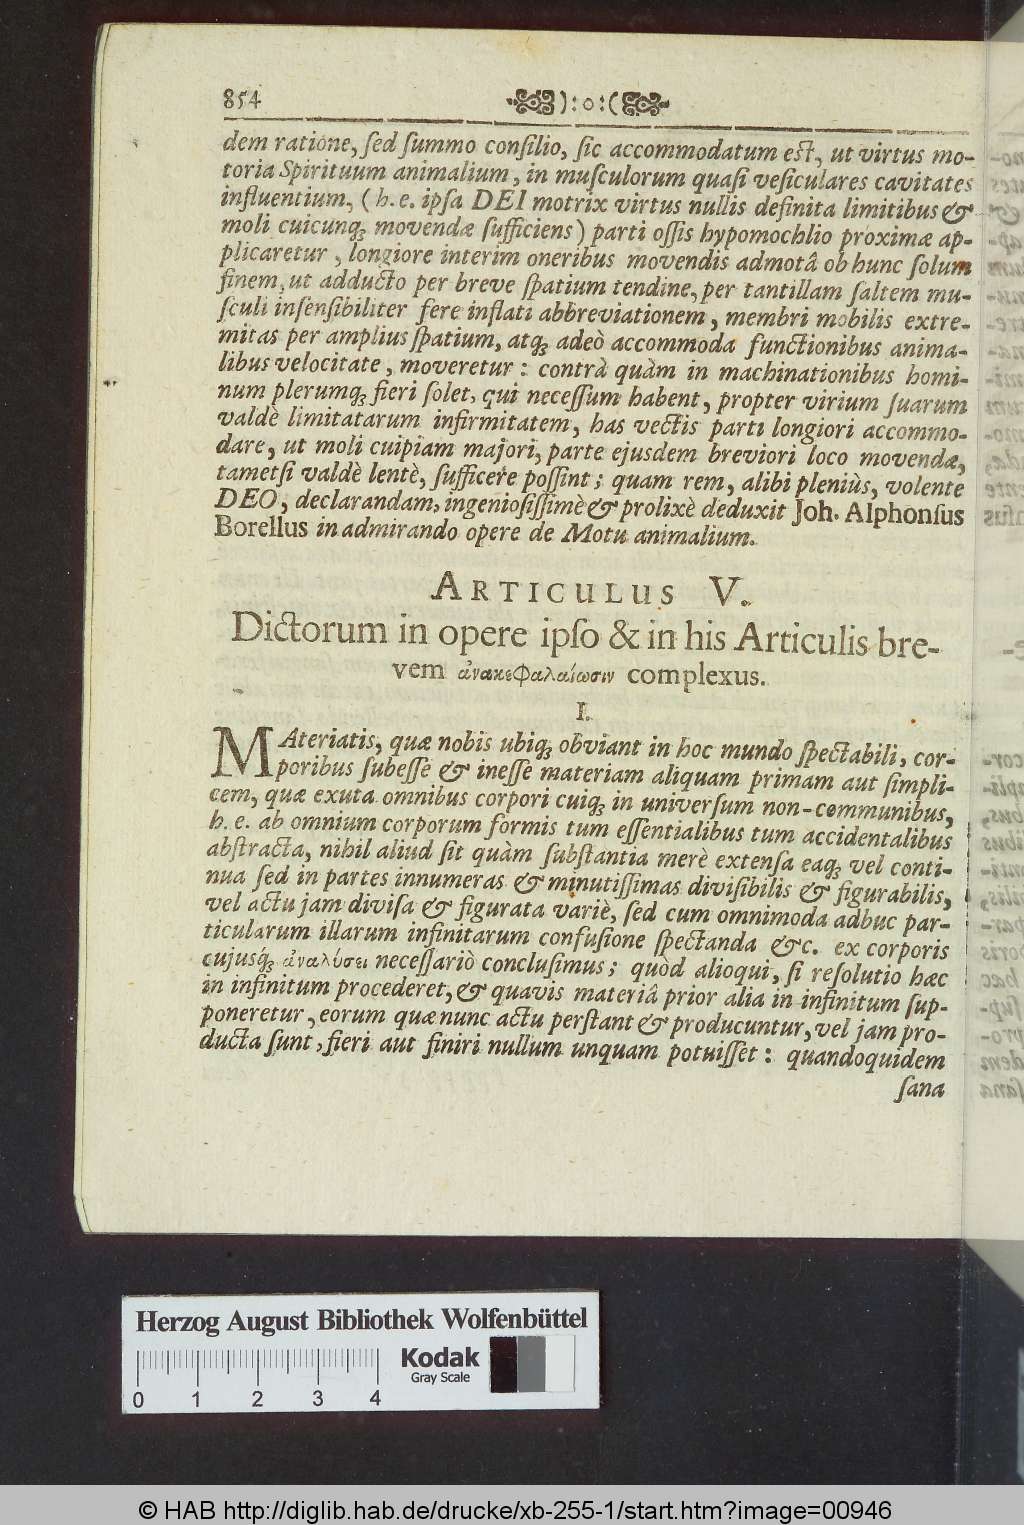 854 ):o:(
dem ratione, ſed ſummo conſilio, ſic accommodatum est, ut virtus mo-
toria Spirituum animalium, in muſculorum quaſi veſiculares cavitates
influentium, (h. e. ipſa DEI motrix virtus nullis definita limitibus &
moli cuicunqꝫ movendæ ſufficiens) parti oſſis hypomochlio proximæ ap-
plicaretur, longiore interim oneribus movendis admotâ ob hunc ſolum
finem, ut adducto per breve ſpatium tendine, per tantillam ſaltem mu-
ſculi inſenſibiliter fere inflati abbreviationem, membri mobilis extre-
mitas per amplius ſpatium, atqꝫ adeò accommoda functionibus anima-
libus velocitate, moveretur: contrà quàm in machinationibus homi-
num plerumqꝫ fieri ſolet, qui neceſſum habent, propter virium ſuarum
valdè limitatarum infirmitatem, has vectis parti longiori accommo-
dare, ut moli cuipiam majori, parte ejusdem breviori loco movendæ,
tametſi valdè lentè, ſufficere poſſint; quam rem, alibi pleniùs, volente
DEO, declarandam, ingenioſiſſimè & prolixè deduxit Joh. Alphonſus
Borellus in admirando opere de Motu animalium.
ARTICULUS V.
Dictorum in opere ipſo & in his Articulis bre-
vem ἀνακεφαλαίωσιν complexus.
I.
MAteriatis, quæ nobis ubiqꝫ obviant in hoc mundo ſpectabili, cor-
poribus ſubeſſe & ineſſe materiam aliquam primam aut ſimpli-
cem, quæ exuta omnibus corpori cuiqꝫ in univerſum non-communibus,
h. e. ab omnium corporum formis tum eſſentialibus tum accidentalibus
abſtracta, nihil aliud ſit quàm ſubſtantia merè extenſa eaqꝫ vel conti-
nua ſed in partes innumeras & minutiſſimas diviſibilis & figurabilis,
vel actu jam diviſa & figurata variè, ſed cum omnimoda adhuc par-
ticularum illarum infinitarum confuſione ſpectanda &c. ex corporis
cujusqꝫ ἀναλύσει neceſſariò concluſimus; quòd alioqui, ſi reſolutio hæc
in infinitum procederet, & quavis materiâ prior alia in infinitum ſup-
poneretur, eorum quæ nunc actu perſtant & producuntur, vel jam pro-
ducta ſunt, fieri aut finiri nullum unquam potuiſſet: quandoquidem
ſana
Herzog August Bibliothek Wolfenbüttel
Kodak
Gray Scale
0 1 2 3 4
© HAB http://diglib.hab.de/drucke/xb-255-1/start.htm?image=00946